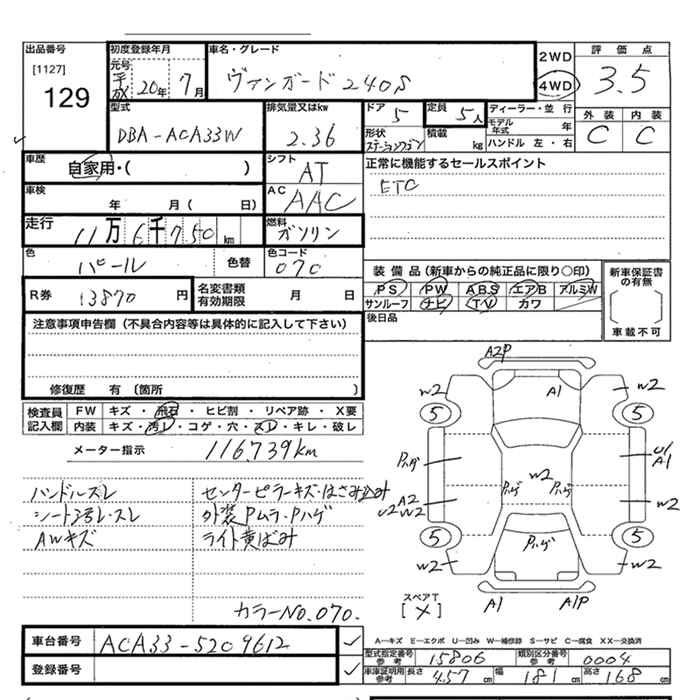 出品番号 初度登録年月 車名・グレード 2WD 評価点
[1127] 元号 平成 20年 7月 ヴァンガード 240S 4WD 3.5
129
型式 排気量又はkw ドア 定員 ディーラー・並行 外装 内装
DBA-ACA33W 2.36 5 5人 モデル年式 年 C C
形状 ステーションワゴン 積載 kg ハンドル 左・右
車歴 シフト 正常に機能するセールスポイント
自家用・( ) AT ETC
車検 AC
年 月( 日) AAC
走行 燃料
11万6千750km ガソリン
色 色替 色コード
パール 070
装備品(新車からの純正品に限り○印) 新車保証書の有無
R券 13870円 名変書類有効期限 月 日 PS PW ABS エアB アルミW
サンルーフ ナビ TV カワ ( )
注意事項申告欄(不具合内容等は具体的に記入して下さい) 後日品 車載不可
修復歴 有 (箇所 )
検査員記入欄 FW キズ・飛石・ヒビ割・リペア跡・X要
内装 キズ・汚レ・コゲ・穴・スレ・キレ・破レ
メーター指示 116,739km
ハンドルスレ センターピラーキズ・はさみ込み
シート汚レ・スレ 外装Pムラ・Pハゲ
AWキズ ライト黄ばみ
カラーNo.070.
A2P
W2 A1 W2
5 5
Pハゲ W2 U1 A1
Pハゲ Pハゲ
A2 U2 W2 W2
5 Pハゲ 5
W2 W2
スペアT
[×] A1 A1P
車台番号 ACA33-5209612 ✓
A-キズ E-エクボ U-凹み W-補修跡 S-サビ C-腐食 XX-交換済
登録番号 ✓
型式指定番号参考 15806 類別区分番号参考 0004
車庫証明用参考 長さ 457cm 幅 181cm 高さ 168cm